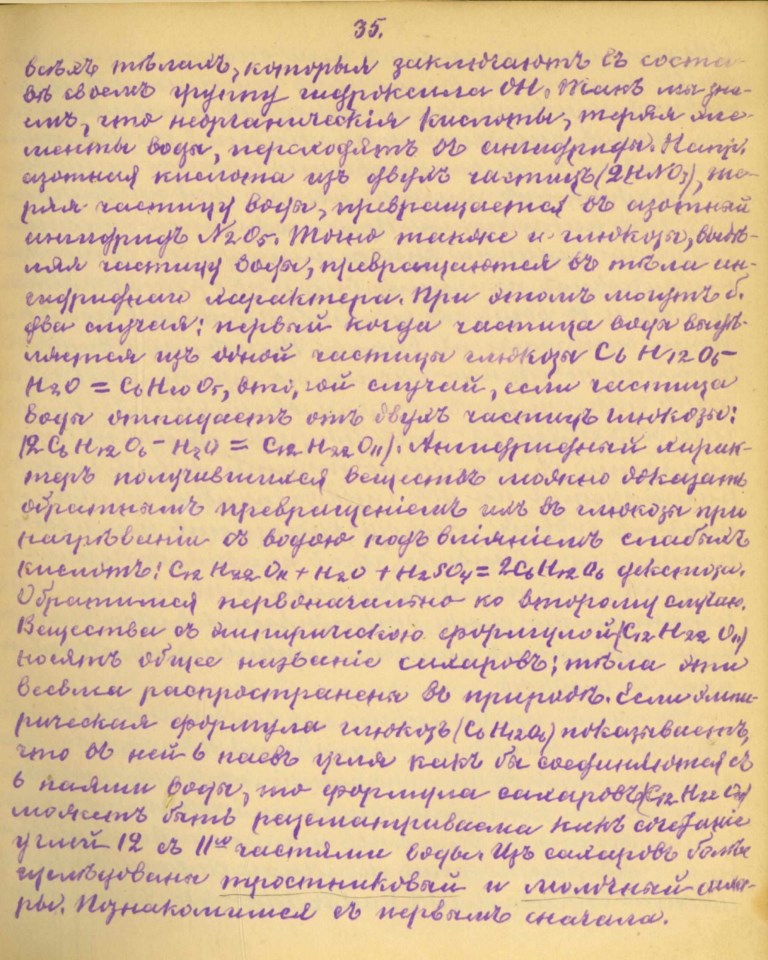 35.
всѣхъ тѣлахъ, которыя заключаютъ въ соста-
вѣ своемъ группу гидроксила OH. Такъ мы зна-
емъ, что неорганическія кислоты, теряя эле-
менты воды, переходятъ въ ангидриды. Напр.
азотная кислота изъ двухъ частицъ (2HNO3), те-
ряя частицу воды, превращается въ азотный
ангидридъ N2O5. Точно также и глюкозы, выдѣ-
ляя частицу воды, превращаются въ тѣла ан-
гидриднаго характера. При этомъ могутъ б.
два случая: первый когда частица воды выдѣ-
ляется изъ одной частицы глюкозы C6 H12O6 -
H2O = C6H10O5, второй случай, если частица
воды отпадаетъ отъ двухъ частицъ глюкозы:
(2C6 H12O6 - H2O = C12 H22O11). Ангидридный харак-
теръ получившихся веществъ можно доказать
обратнымъ превращеніемъ ихъ въ глюкозы при
нагрѣваніи съ водою подъ вліяніемъ слабыхъ
кислотъ: C12 H22O11 + H2O + H2SO4 = 2C6H12O6 декстоза.
Обратимся первоначально ко второму случаю.
Вещества съ эмпирическою формулой (C12 H22 O11)
носятъ общее названіе сахаровъ; тѣла эти
весьма распространены въ природѣ. Если эмпи-
рическая формула глюкозъ (C6H12O6) показываетъ,
что въ ней 6 паевъ угля какъ бы соединяются съ
6 паями воды, то формула сахаровъ (C12 H22 O11)
можетъ быть разсматриваема какъ сочетаніе
углей 12 съ 11ю частями воды. Изъ сахаровъ болѣе
изслѣдованы тростниковый и молочный саха-
ры. Познакомимся съ первымъ сначала.